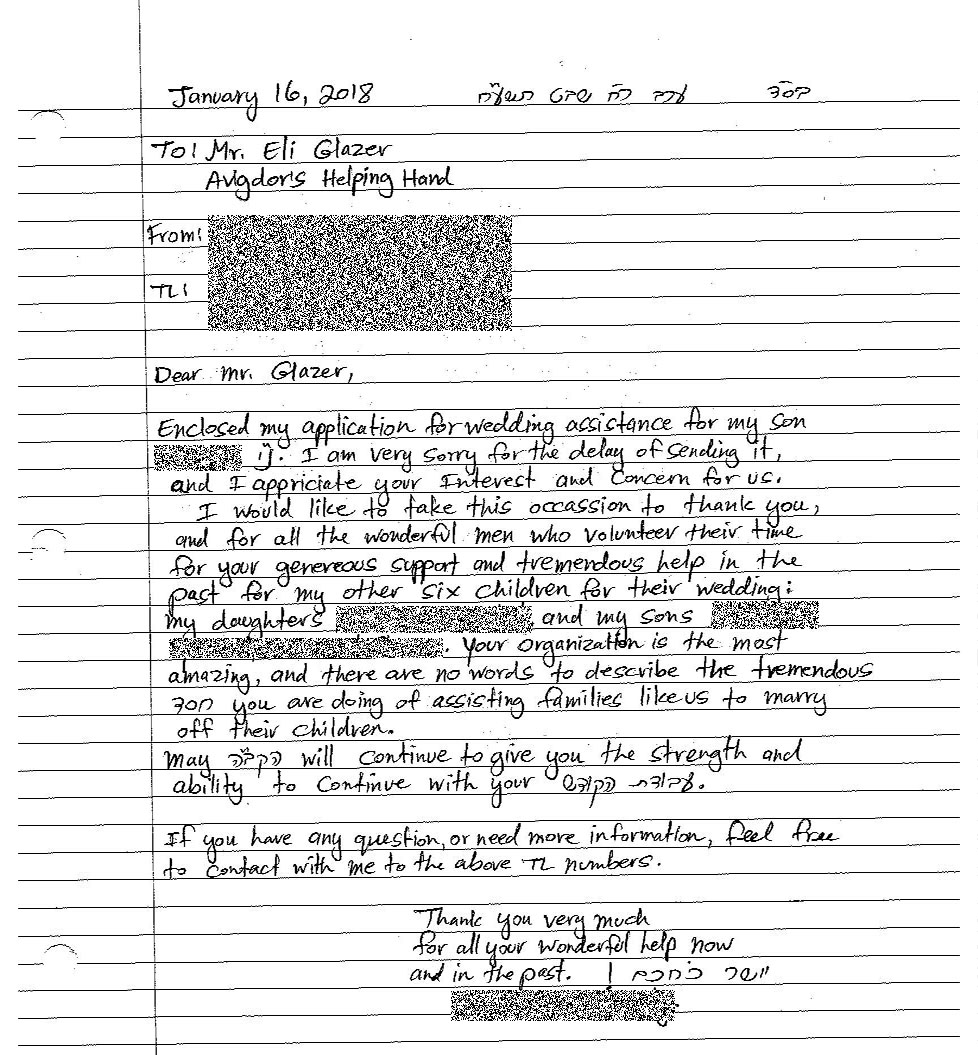 January 16, 2018 ערב ר״ח שבט תשע״ח בס״ד
To: Mr. Eli Glazer
Avigdor's Helping Hand
From:
TL:
Dear Mr. Glazer,
Enclosed my application for wedding assistance for my son
נ״י. I am very sorry for the delay of sending it,
and I appriciate your Interest and Concern for us.
I would like to take this occassion to thank you,
and for all the wonderful men who volunteer their time
for your genereous support and tremendous help in the
past for my other six children for their wedding:
my daughters , and my sons
. Your organization is the most
amazing, and there are no words to describe the tremendous
חסד you are doing of assisting families like us to marry
off their children.
May הקב״ה will continue to give you the strength and
ability to continue with your עבודת הקודש.
If you have any question, or need more information, feel free
to contact with me to the above TL numbers.
Thank you very much
for all your wonderful help now
and in the past. יישר כחכם !